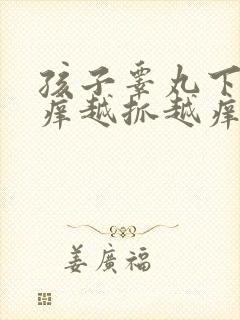 孩子睾丸下
痒越抓越痒
姜廣福